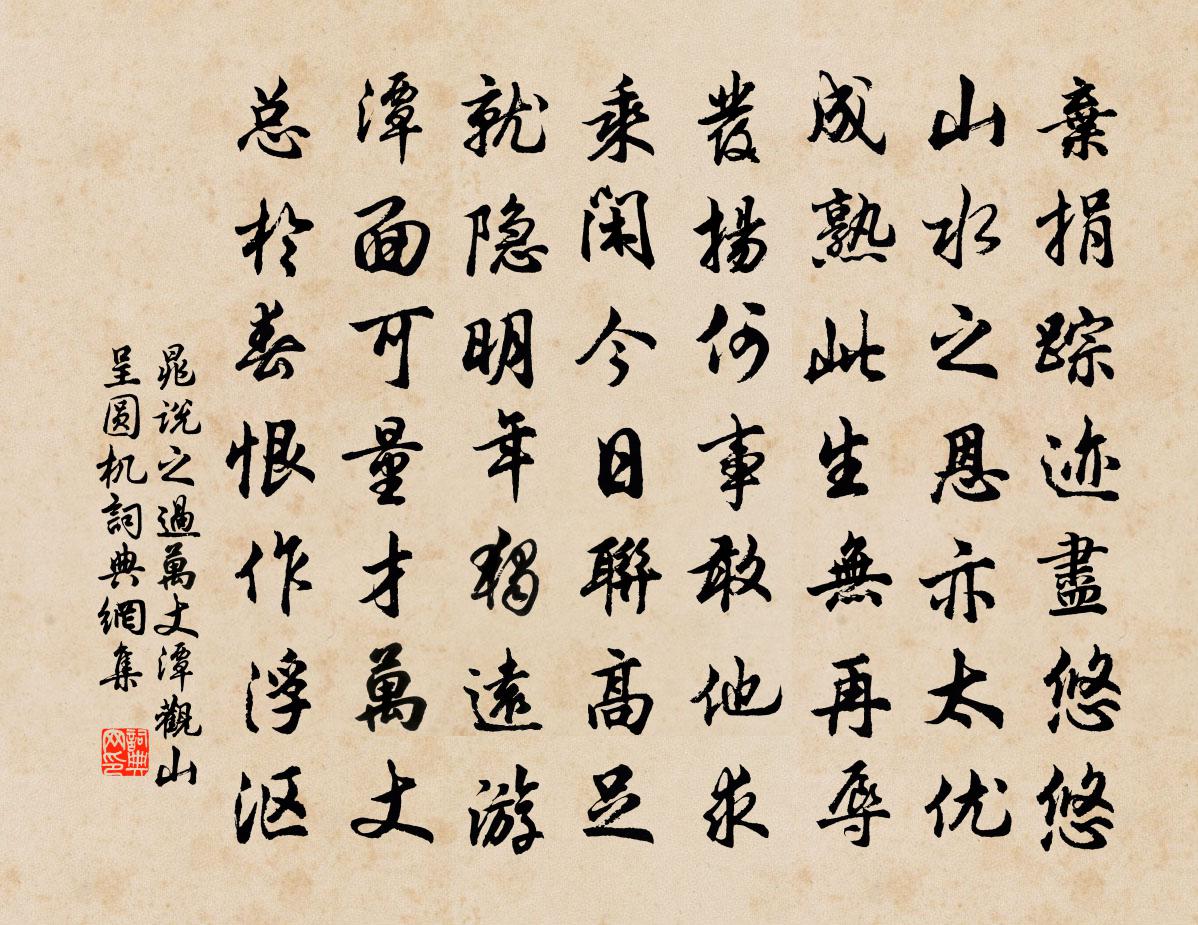 棄捐踪迹盡悠悠
山水之恩亦太优
成熟此生無再辱
發揚何事敢他求
乘閑今日聯高足
就隐明年獨遠游
潭面可量才萬丈
总於春恨作浮沤
晁说之過萬丈潭觀山
呈圆机詞典網集
詞典网印